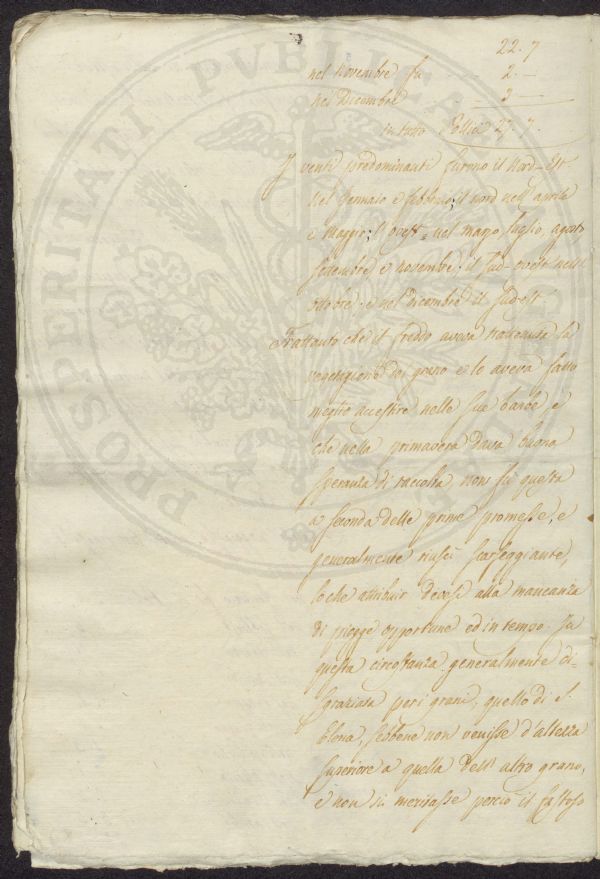 22. 7
nel Novembre fu 2. —
nel Dicembre 3 —
in tutto Pollici 27. 7.
I venti predominanti furono il Nord-Est
nel Gennaio e febbraio; il nord nell'aprile
e Maggio; l'ovest nel marzo, luglio, agosto
settembre e novembre; il Sud-ovest nell'
ottobre; e nel Dicembre il Sud-est.
Trattanto che il freddo aveva trattenuta la
vegetazione del grano e lo aveva fatto
meglio accestire nelle sue barbe, e
che nella primavera dava buona
speranza di raccolta, non fu questa
a seconda delle prime promesse, e
generalmente riuscì scarseggiante,
lo che attribuir devesi alla mancanza
di piogge opportune ed in tempo. In
questa circostanza generalmente di-
sgraziata per i grani, quello di S.
Elena, sebbene non venisse d'altezza
superiore a quella dell'altro grano,
e non si meritasse perciò il fastoso
PROSPERITATI PUBLICAE